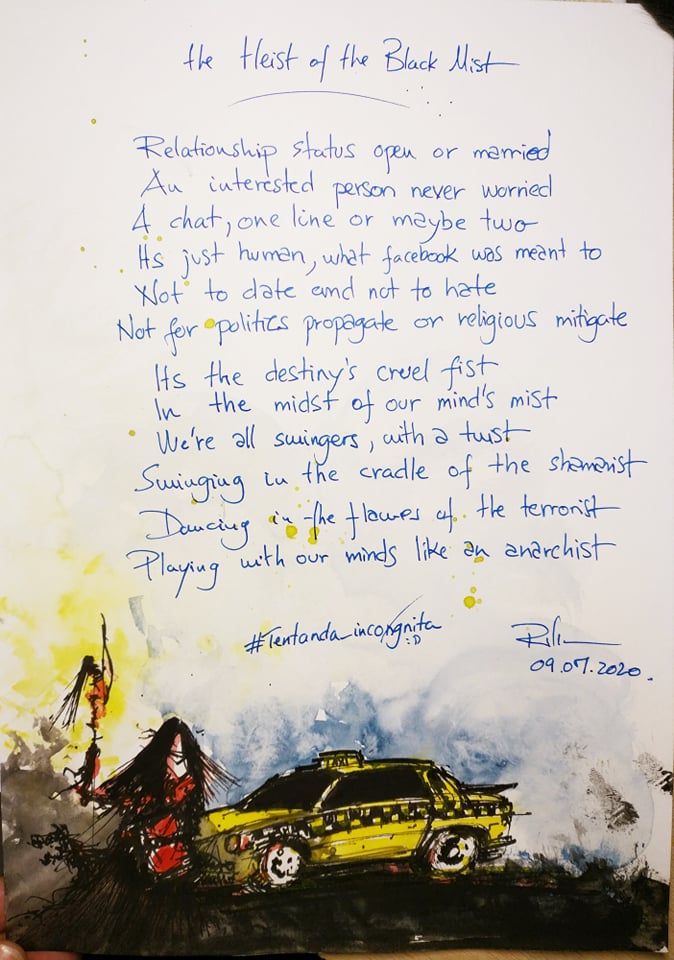 the Heist of the Black Mist
Relationship status open or married
An interested person never worried
A chat, one line or maybe two
Its just human, what facebook was meant to
Not to date and not to hate
Not for politics propagate or religious mitigate
Its the destiny's cruel fist
In the midst of our mind's mist
We're all swingers, with a twist
Swinging in the cradle of the shamanist
Dancing in the flames of the terrorist
Playing with our minds like an anarchist
#Tentanda_incognita
:D
09.07.2020.